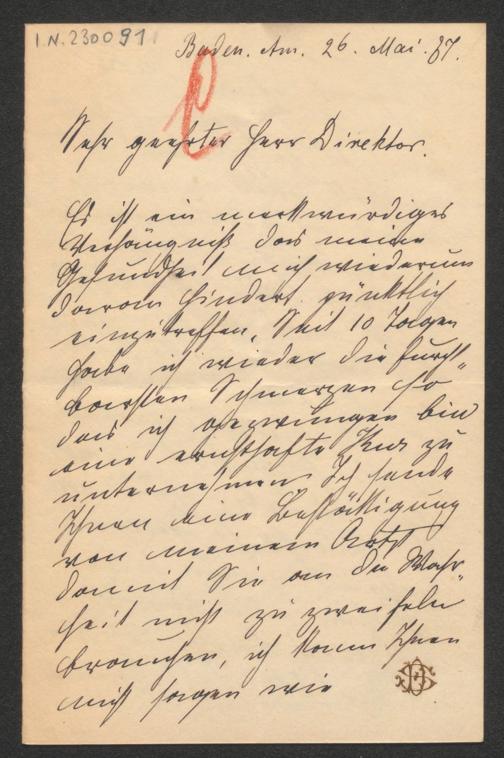 I.N. 230091
Baden. Am. 26. Mai. 87.
Sehr geehrter Herr Direktor.
Es ist ein merkwürdiges
Verhängniß das meine
Gesundheit mich wiederum
daran hindert pünktlich
einzutreffen. Seit 10 Tagen
habe ich wieder die furcht-
barsten Schmerzen so
das ich gezwungen bin
eine ernsthafte Kur zu
unternehmen Ich sende
Ihnen eine Bestättigung
von meinem Artzt
damit Sie an der Wahr-
heit nicht zu zweifeln
brauchen, ich kann Ihnen
nicht sagen wie